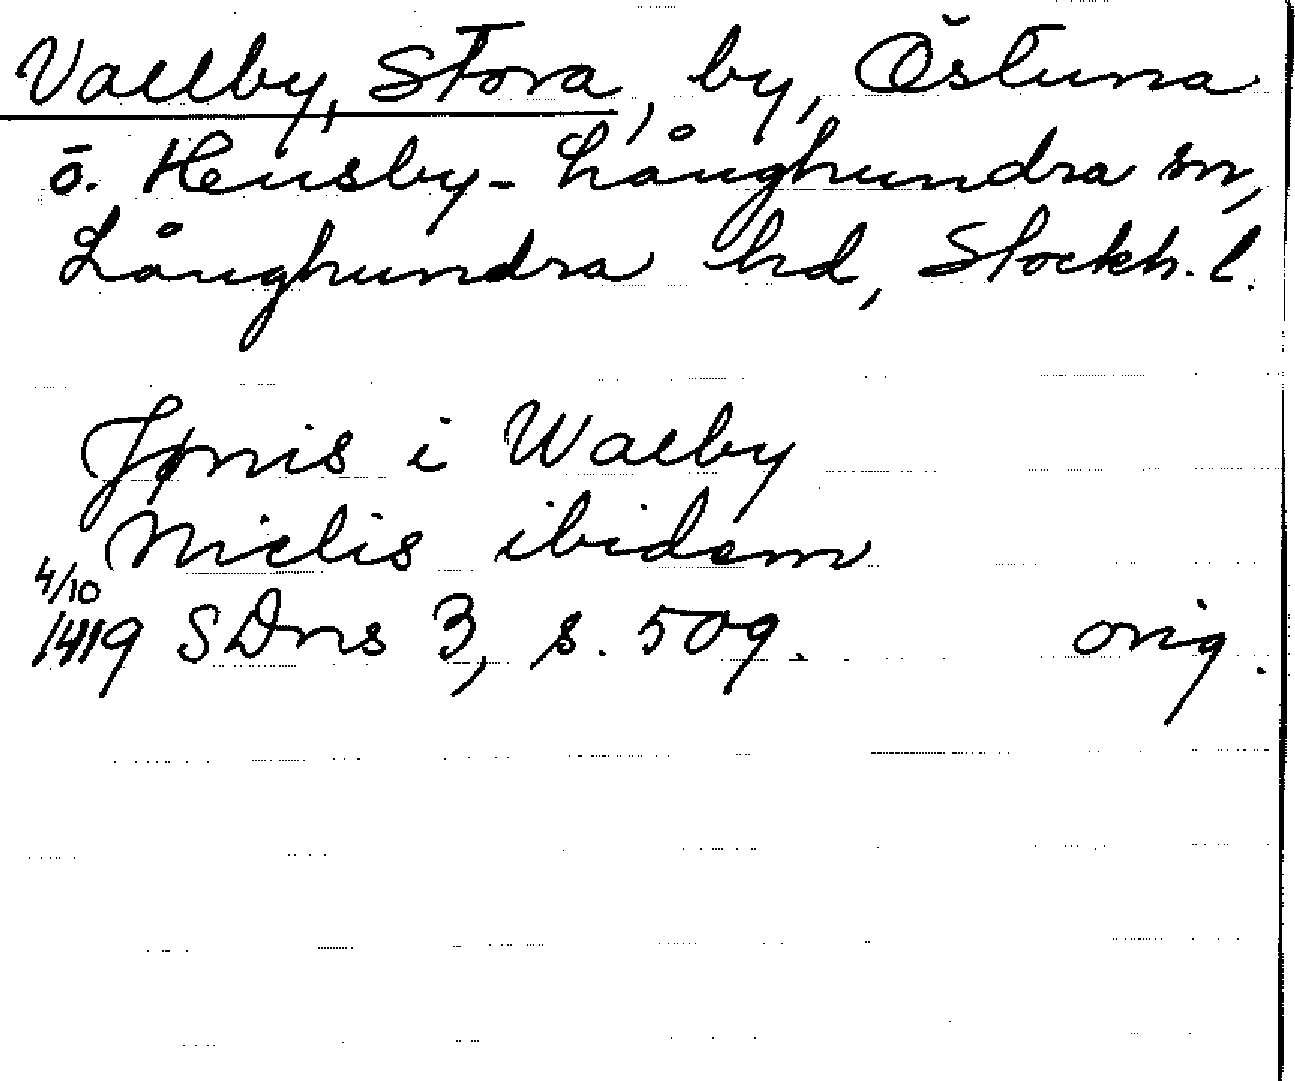 Vallby, Stora, by, Östuna
o. Husby-Långhundra sn,
Långhundra hd, Stockh. l.
Jønis i Walby
Niclis ibidem
4/10
1419 SDns 3, s. 509. orig.